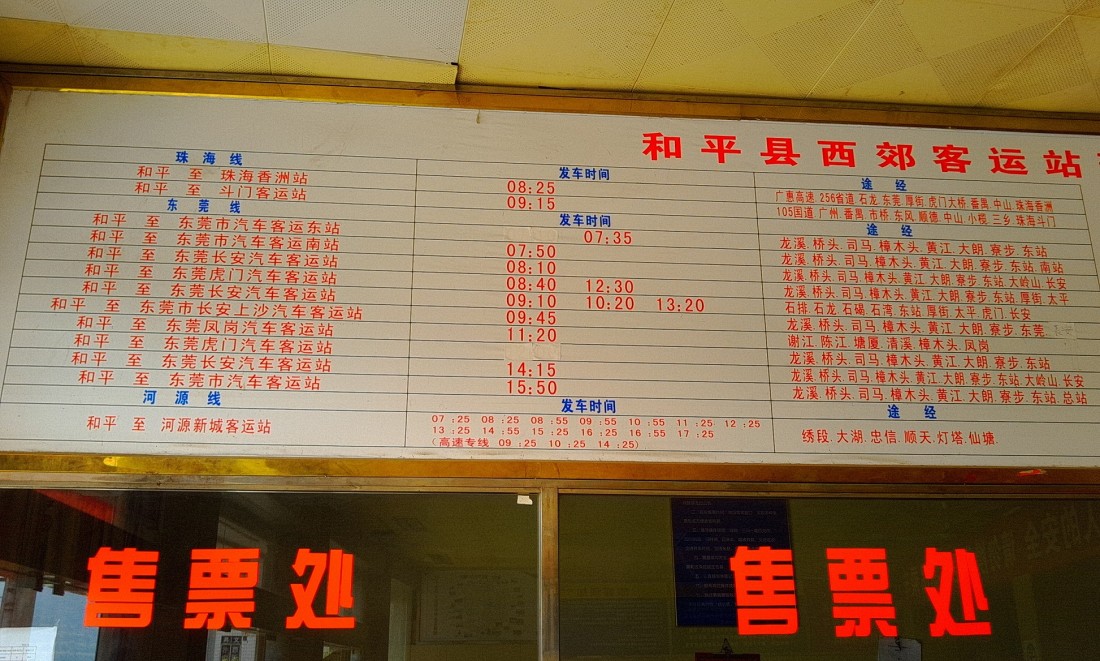 和平县西郊客运站
珠海线 发车时间 途经
和平 至 珠海香洲站 08:25 广惠高速.256省道.石龙.东莞.厚街.虎门大桥.番禺.中山.珠海香洲
和平 至 斗门客运站 09:15 105国道.广州.番禺.市桥.东风.顺德.中山.小榄.三乡.珠海斗门
东莞线 发车时间 途经
和平 至 东莞市汽车客运东站 07:35 龙溪.桥头.司马.樟木头.黄江.大朗.寮步.东站
和平 至 东莞市汽车客运南站 07:50 龙溪.桥头.司马.樟木头.黄江.大朗.寮步.东站.南站
和平 至 东莞长安汽车客运站 08:10 龙溪.桥头.司马.樟木头.黄江.大朗.寮步.东站.大岭山.长安
和平 至 东莞虎门汽车客运站 08:40 12:30 龙溪.桥头.司马.樟木头.黄江.大朗.寮步.东站.厚街.太平
和平 至 东莞长安汽车客运站 09:10 10:20 13:20 石排.石龙.石碣.石湾.东站.厚街.太平.虎门.长安
和平 至 东莞市长安上沙汽车客运站 09:45 龙溪.桥头.司马.樟木头.黄江.大朗.寮步.东莞
和平 至 东莞凤岗汽车客运站 11:20 谢江.陈江.塘厦.清溪.樟木头.凤岗
和平 至 东莞虎门汽车客运站 龙溪.桥头.司马.樟木头.黄江.大朗.寮步.东站
和平 至 东莞长安汽车客运站 14:15 龙溪.桥头.司马.樟木头.黄江.大朗.寮步.东站.大岭山.长安
和平 至 东莞市汽车客运站 15:50 龙溪.桥头.司马.樟木头.黄江.大朗.寮步.东站.总站
河源线 发车时间 途经
和平 至 河源新城客运站 07:25 08:25 08:55 09:55 10:55 11:25 12:25
13:25 14:55 15:25 16:25 16:55 17:25
(高速专线 09:25 10:25 14:25)
绣段.大湖.忠信.顺天.灯塔.仙塘.
售票处 售票处